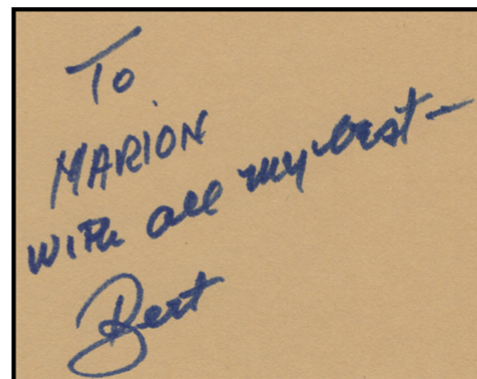 To
MARION
with all my best-
Bert